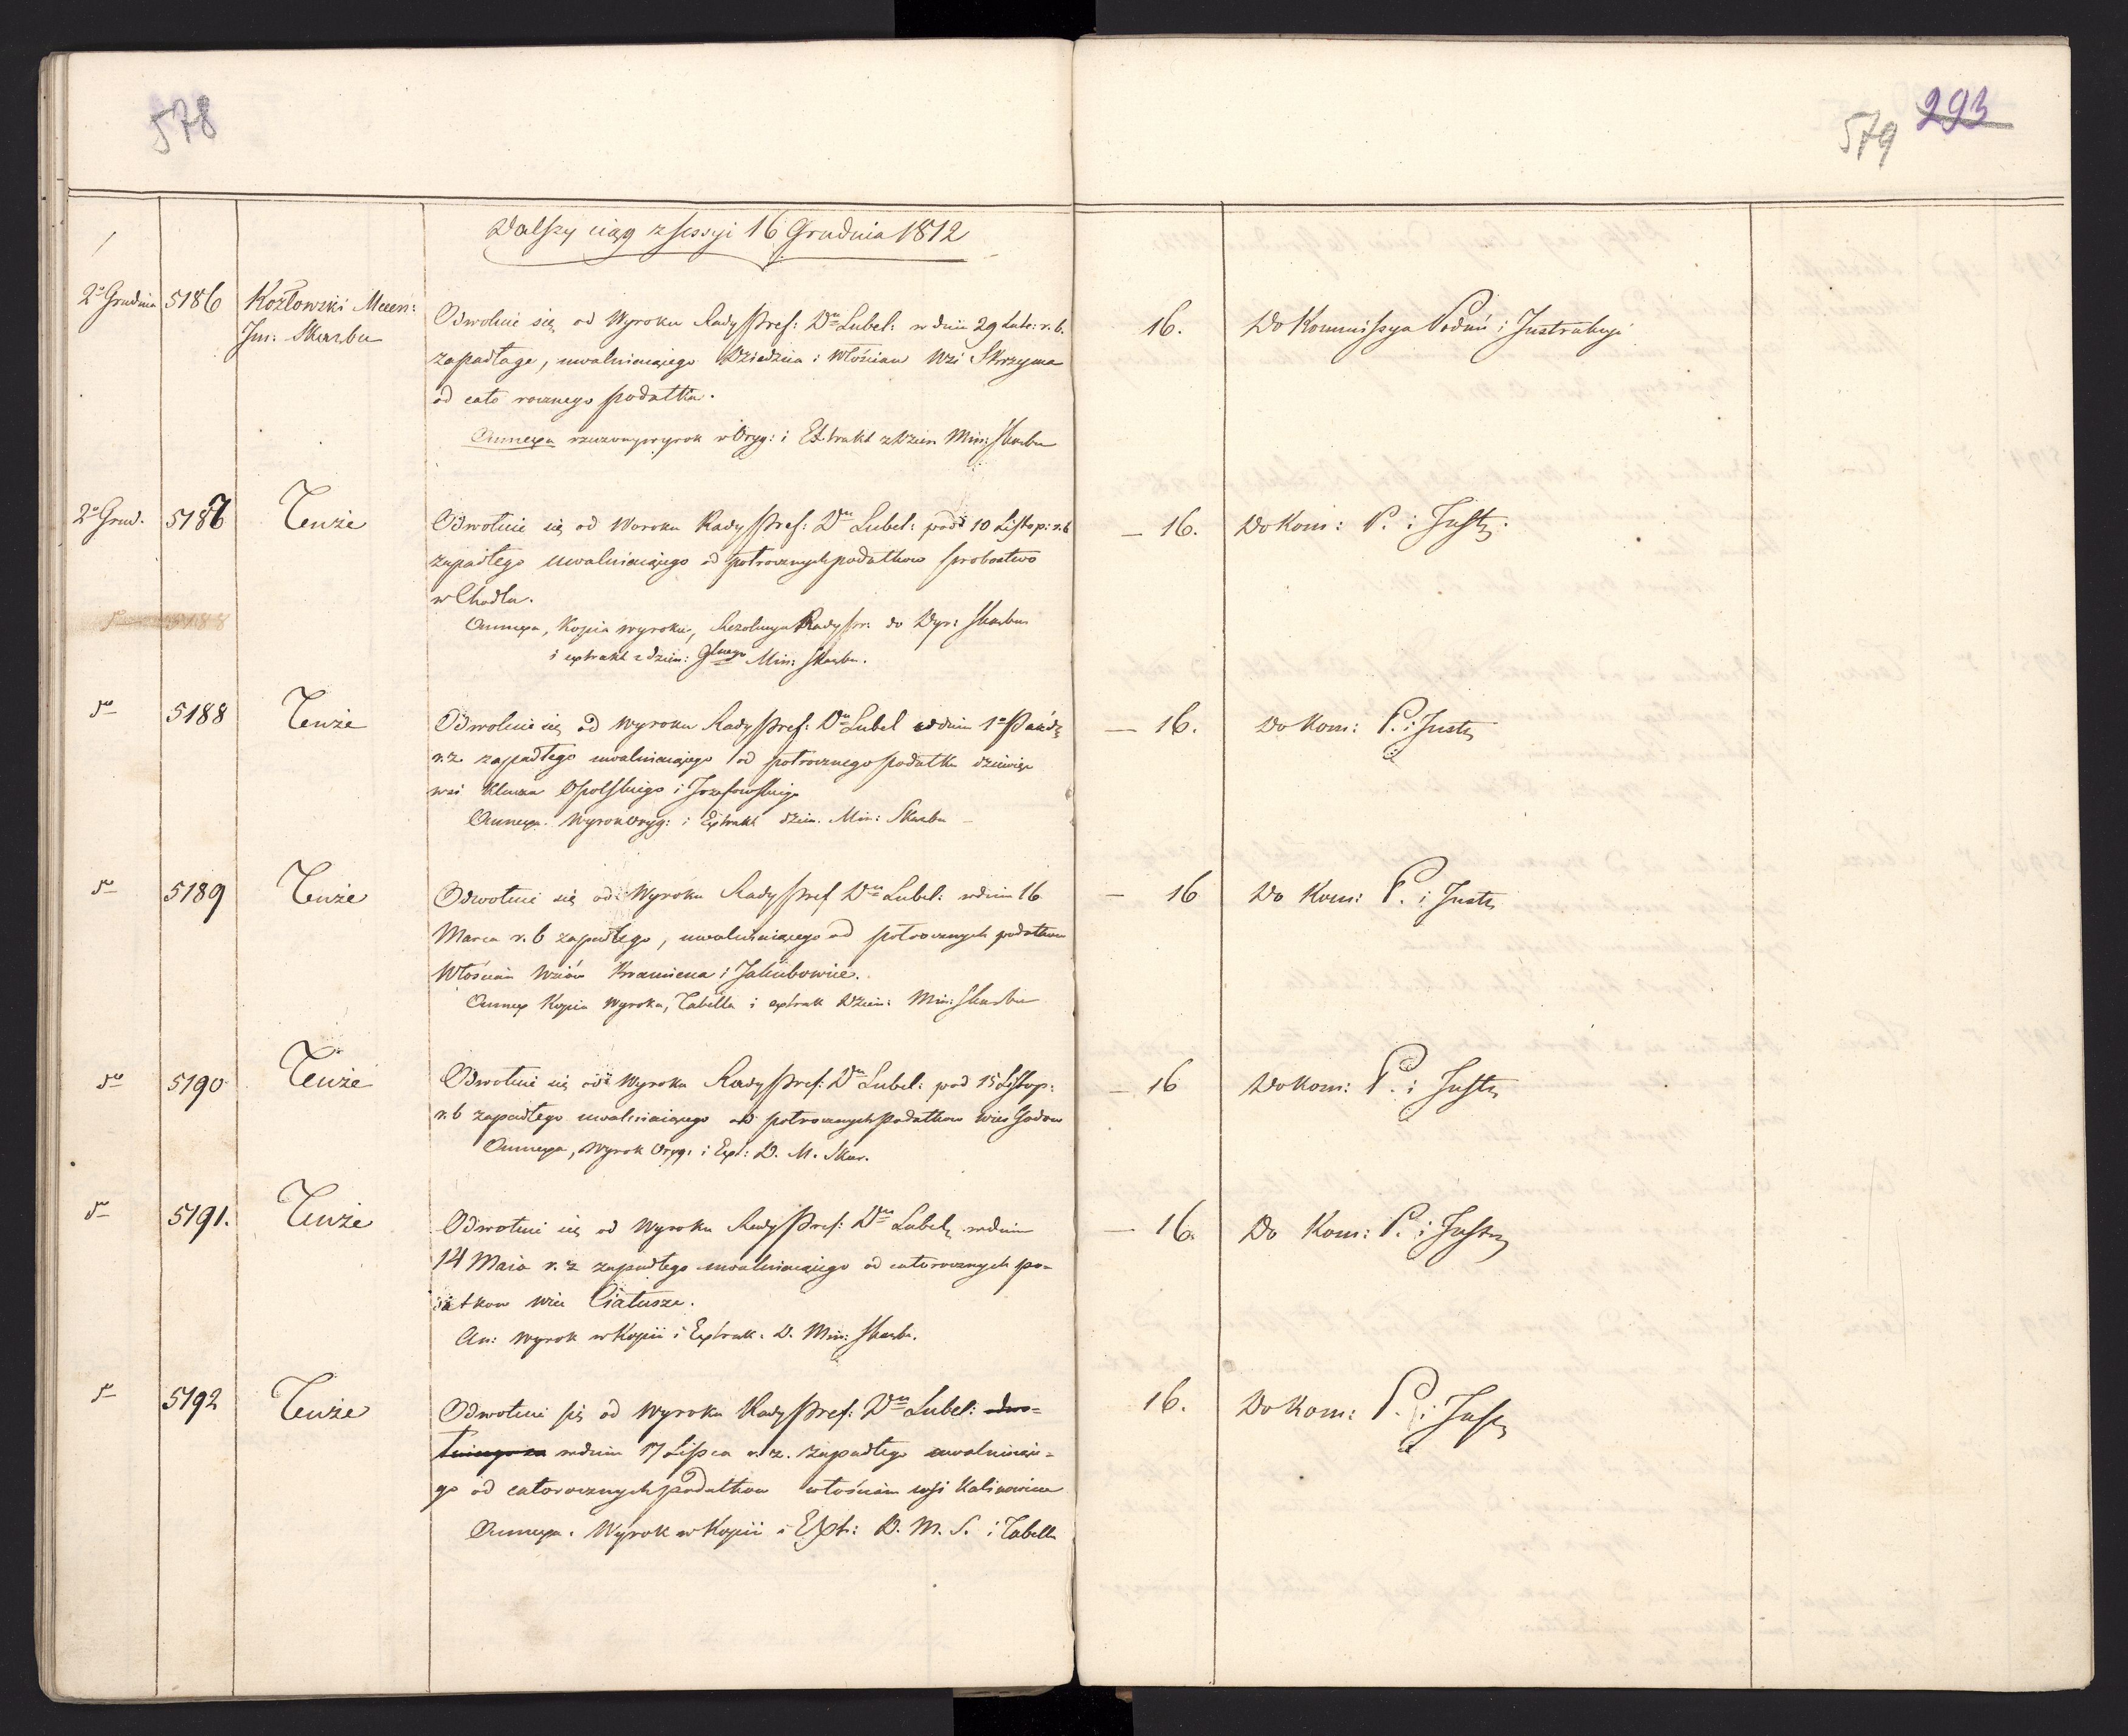 578
579 293
Dalszy ciąg z sessyi 16 Grudnia 1812
2o Grudnia 5186 Kozłowski Mecen:
Im: Skarbu
Odwołuie się od Wyroku Rady Pref: Dtu Lubel: w dniu 29 Lute: r. b.
zapadłego, uwalniaiącego Dziedzica i Włościan Wsi Skrzyma
od cało rocznego podatku.
Annexa rzuzony wyrok w Oryg: i Extrakt z Dzien Min: Skarbu
16. Do Kommissya Podań i Instrukcyi
2o Grud. 5187 Tenże
Odwołuie się od Woroku Rady Pref: Dtu Lubel: pod d 10 Listop: r. b
zapadłego uwalniaiącego od połrocznych podatkow probostwo
w Chodlu.
Annexa, Kopia wyroku, Rezolucya Rady Pr: do Dyr: Skarbu
i extrakt z Dzien: Głnego Min: Skarbu.
— 16. Do Kom: P. i Instr:
do 5188 Tenże
Odwołuie się od Wyroku Rady Pref: Dtu Lubel w dniu 1o Paźdz
r. z. zapadłego uwalniaiącego od połrocznego podatku dziewięć
wsi Klucza Opolskiego i Jozefowskiego
Annexa. Wyrok Oryg: i Extrakt Dzien. Min: Skarbu —
— 16. Do Kom: P. i Instr
do 5189 Tenże
Odwołuie się od Wyroku Rady Pref Dtu Lubel: w dniu 16
Marca r. b zapadłego, uwalniaiącego od połrocznych podatkow
Włościan Wsiów Kramiena i Jakubowice.
Annex Kopia Wyroku, Tabella i extrak Dzien: Min: Skarbu
— 16 Do Kom: P. i Instr
do 5190 Tenże
Odwołuie się od Wyroku Rady Pref: Dtu Lubel: pod 15 Listop:
r. b zapadłego uwalniaiącego od połrocznych Podatkow Wieś Godow
Annexa, Wyrok Oryg: i Ext: D. M. Skar.
— 16 Do Kom: P. i Instr
do 5191. Tenże
Odwołuie się od Wyroku Rady Pref: Dtu Lubel, w dniu
14 Maia r. z zapadłego uwalniaiącego od całorocznych po-
datkow wieś Ciatusze.
An: Wyrok w Kopii i Extrak: D. Min: Skarb.
— 16. Do Kom: P. i Instr
do 5192 Tenże
Odwołuie się od Wyroku Rady Pref: Dtu Lubel:
w dniu 17 Lipca r. z. zapadłego uwalniaiące-
go od całorocznych podatkow włościan wsi Kalinowice
Annexa. Wyrok w Kopii i Ext: D. M. S. i Tabella
16. Do Kom: P. i Instr